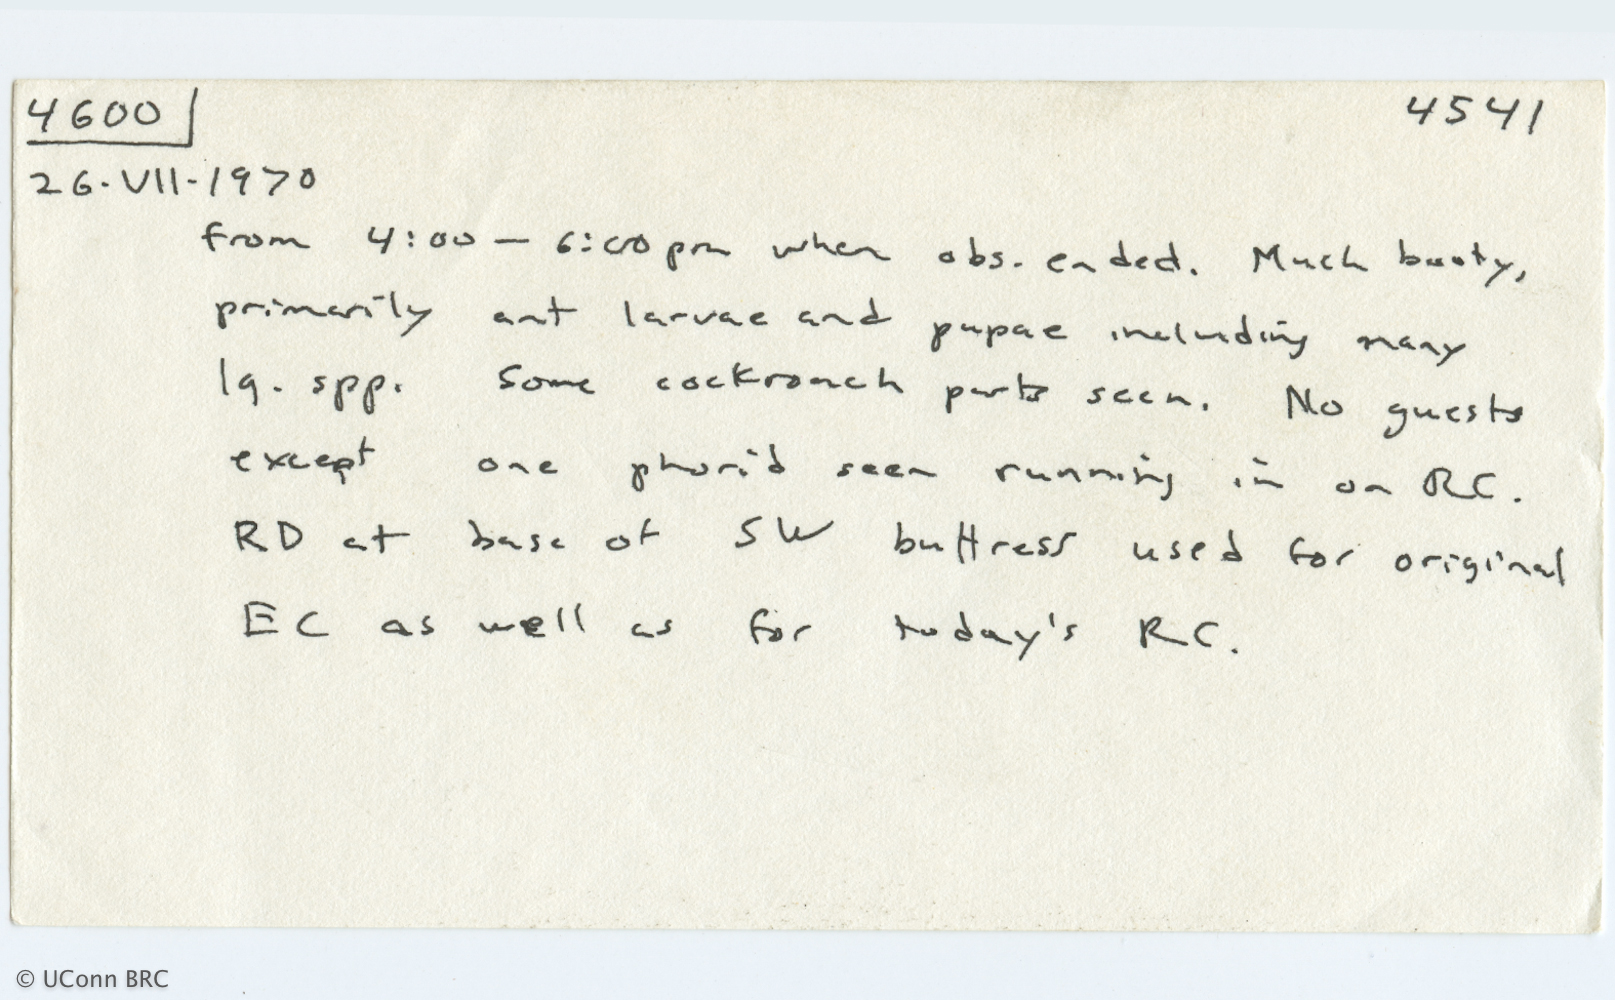 4600 4541
26.VII.1970
from 4:00 — 6:00 pm when obs. ended. Much booty,
primarily ant larvae and pupae including many
lg. spp. Some cockroach parts seen. No guests
except one phorid seen running in on RC.
RD at base of SW buttress used for original
EC as well as for today's RC.
© UConn BRC